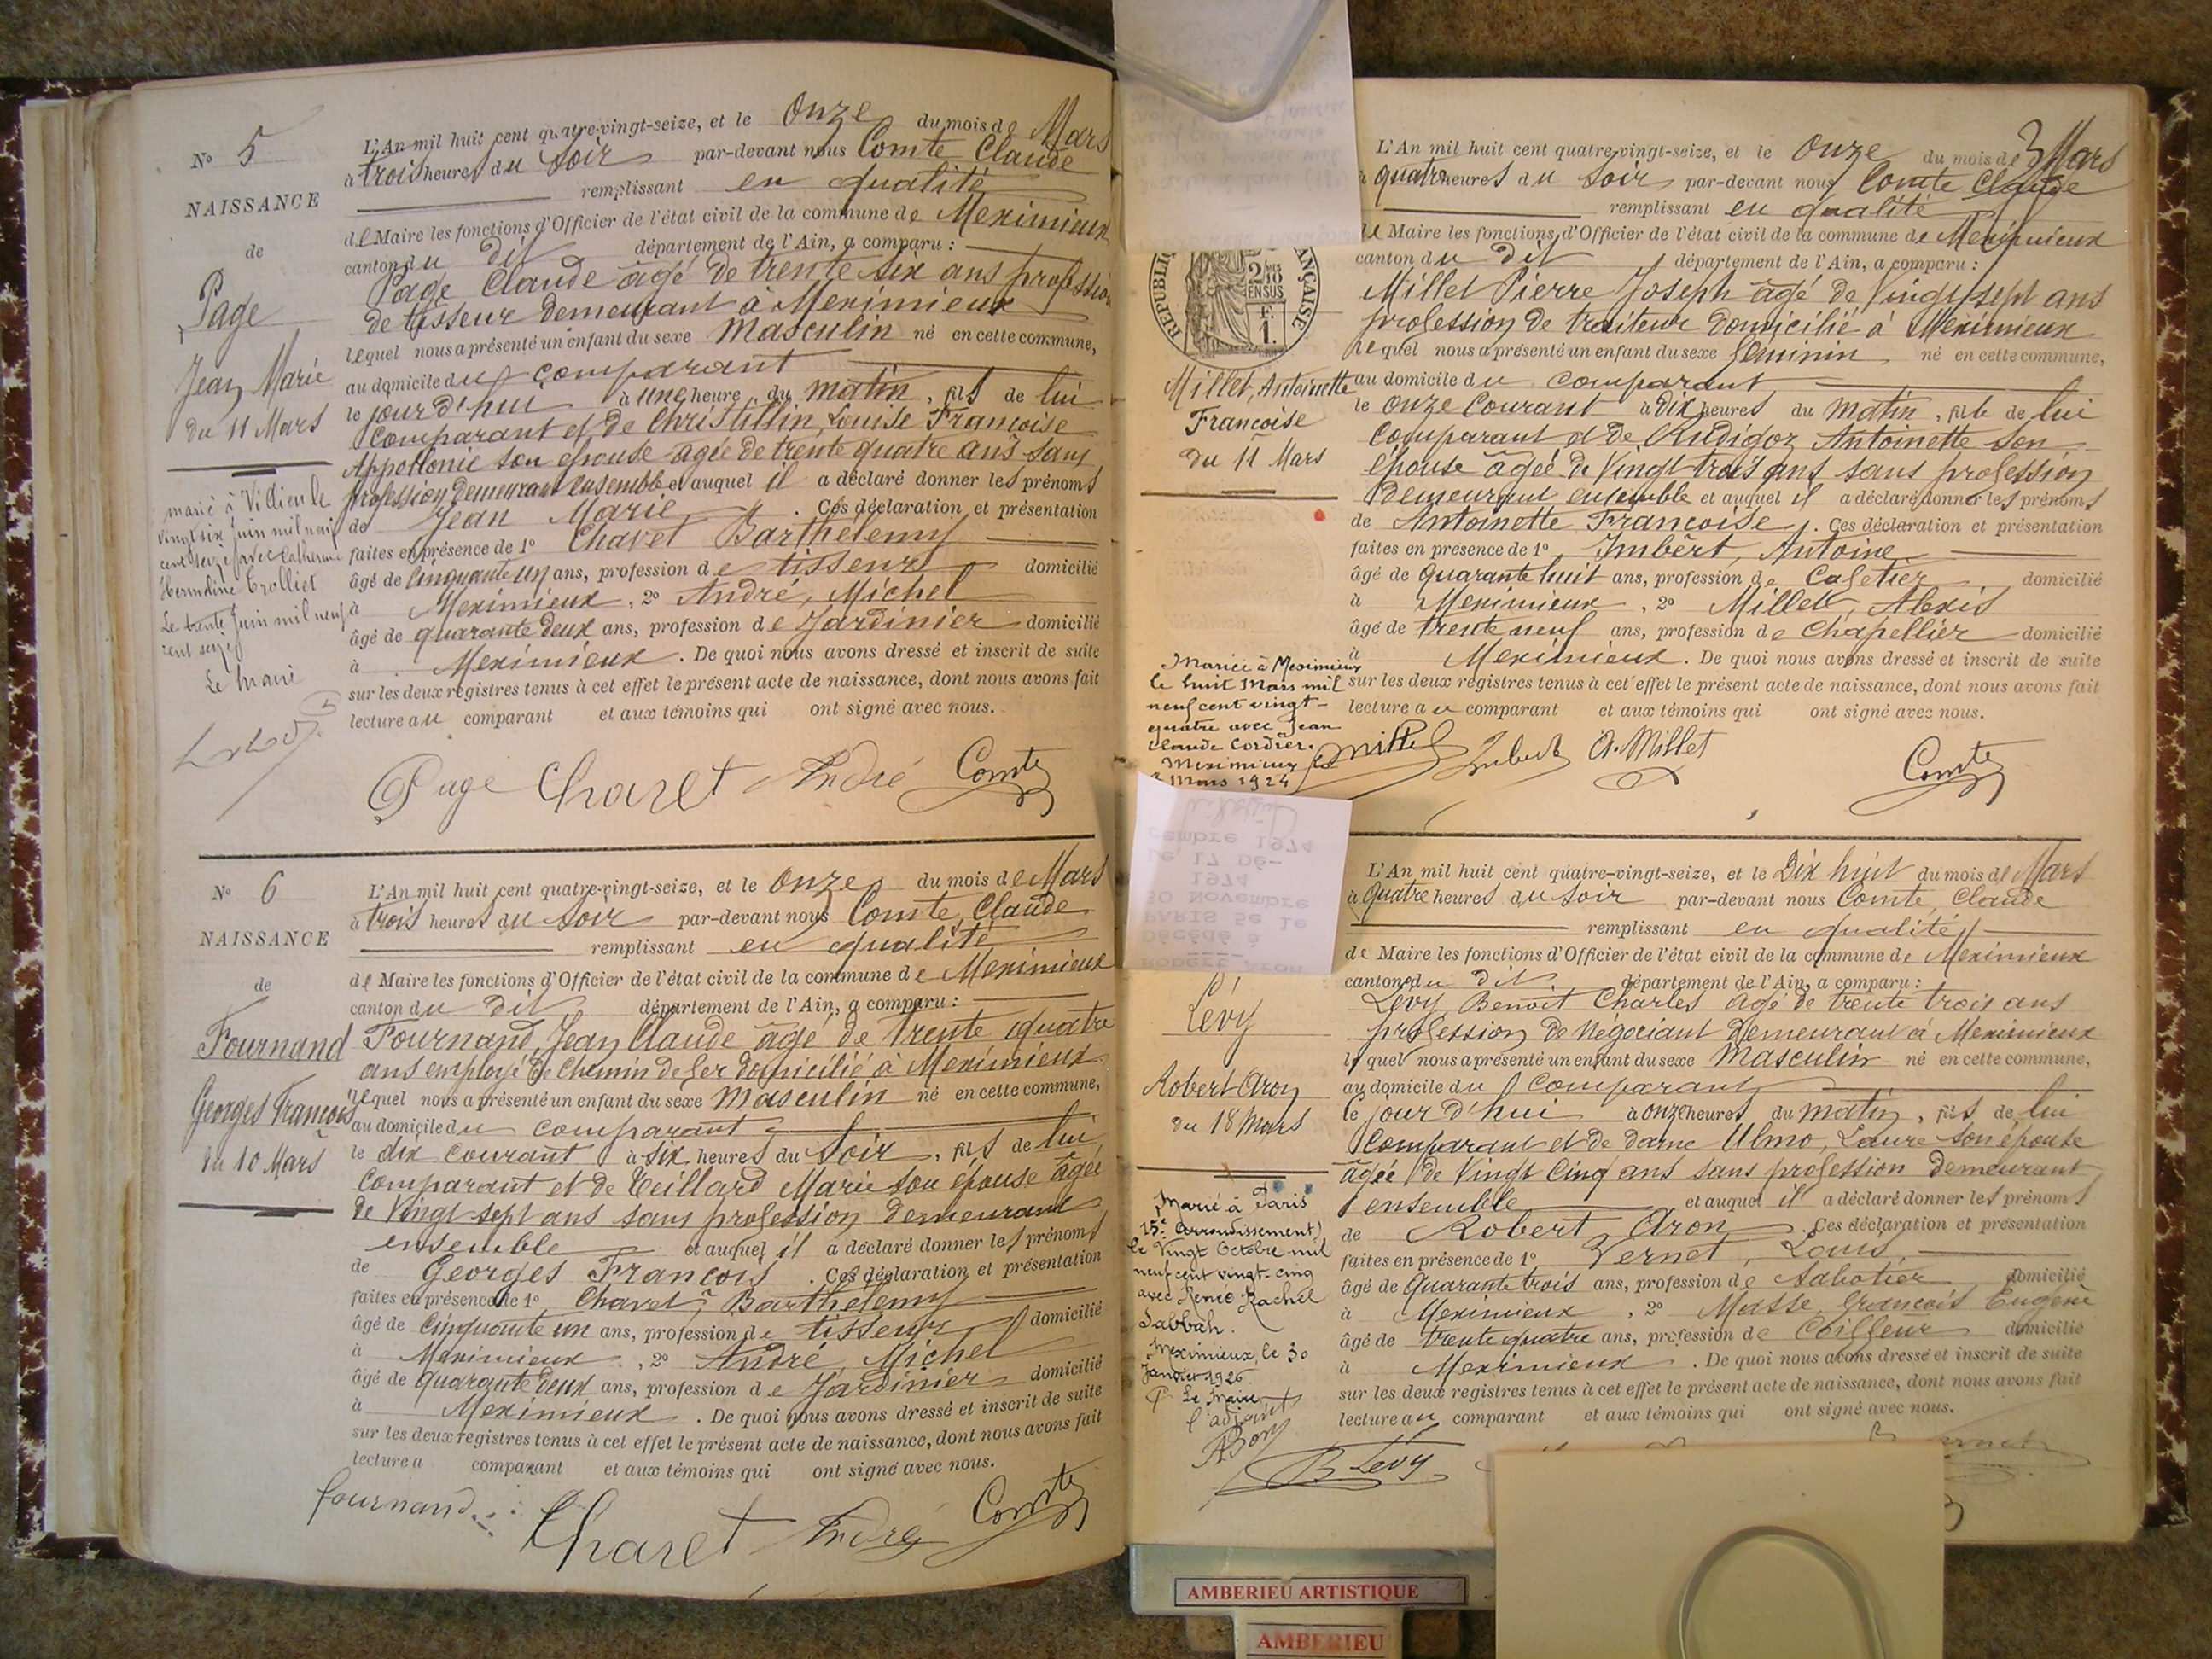 N° 5
NAISSANCE
de
Page
Jean Marie
du 11 Mars
marié à Villieu le
vingt six juin mil neuf
cent seize avec Catherine
Trolliet
Le trente Juin mil neuf
cent seize
Le Maire
L'An mil huit cent quatre-vingt-seize, et le Onze du mois de Mars
à trois heures du Soir par-devant nous Comte Claude
remplissant en qualité
de Maire les fonctions d'Officier de l'état civil de la commune de Meximieux
canton du dit département de l'Ain, a comparu :
Page Claude âgé de trente six ans profession
de tisseur demeurant à Meximieux
lequel nous a présenté un enfant du sexe Masculin né en cette commune,
au domicile du comparant
le jour d'hui à une heure du matin, fils de lui
Comparant et de Christillin, Louise Françoise
Appollonie son épouse agée de trente quatre ans sans
profession demeurant ensemble et auquel il a déclaré donner les prénoms
de Jean Marie. Ces déclaration et présentation
faites en présence de 1° Chavet Barthélemy
âgé de Cinquante un ans, profession de tisseur domicilié
à Meximieux, 2° André, Michel
âgé de quarante deux ans, profession de Jardinier domicilié
à Meximieux. De quoi nous avons dressé et inscrit de suite
sur les deux registres tenus à cet effet le présent acte de naissance, dont nous avons fait
lecture au comparant et aux témoins qui ont signé avec nous.
Page Chavet André Comte
N° 6
NAISSANCE
de
Fournand
Georges François
du 10 Mars
L'An mil huit cent quatre-vingt-seize, et le Onze du mois de Mars
à trois heures du Soir par-devant nous Comte, Claude
remplissant en qualité
de Maire les fonctions d'Officier de l'état civil de la commune de Meximieux
canton du dit département de l'Ain, a comparu :
Fournand, Jean Claude âgé de trente quatre
ans employé de Chemin de fer domicilié à Meximieux
lequel nous a présenté un enfant du sexe Masculin né en cette commune,
au domicile du comparant
le dix courant à six heures du Soir, fils de lui
Comparant et de Teillard Marie son épouse âgée
de Vingt sept ans sans profession demeurant
ensemble et auquel il a déclaré donner les prénoms
de Georges François. Ces déclaration et présentation
faites en présence de 1° Chavet, Barthélemy
âgé de Cinquante un ans, profession de tisseur domicilié
à Meximieux, 2° André, Michel
âgé de quarante deux ans, profession de Jardinier domicilié
à Meximieux. De quoi nous avons dressé et inscrit de suite
sur les deux registres tenus à cet effet le présent acte de naissance, dont nous avons fait
lecture a comparant et aux témoins qui ont signé avec nous.
fournand Chavet André Comte
2/10 EN SUS
1 F.
Millet, Antoinette
Françoise
du 11 Mars
Mariée à Meximieux
le huit Mars mil
neuf cent vingt-
quatre avec Jean
Claude Cordier.
Meximieux le
Mars 1924
L'An mil huit cent quatre-vingt-seize, et le Onze du mois de Mars
à quatre heures du Soir par-devant nous Comte Claude
remplissant en qualité
de Maire les fonctions d'Officier de l'état civil de la commune de Meximieux
canton du dit département de l'Ain, a comparu :
Millet Pierre Joseph âgé de Vingt-sept ans
profession de traiteur domicilié à Meximieux
lequel nous a présenté un enfant du sexe féminin né en cette commune,
au domicile du comparant
le onze Courant à dix heures du matin, fille de lui
Comparant et de Rudigoz Antoinette son
épouse âgée de Vingt trois ans sans profession
demeurant ensemble et auquel il a déclaré donner les prénoms
de Antoinette Françoise. Ces déclaration et présentation
faites en présence de 1° Imbert, Antoine
âgé de quarante huit ans, profession de Cafetier domicilié
à Meximieux, 2° Millet, Alexis
âgé de trente neuf ans, profession de Chapellier domicilié
à Meximieux. De quoi nous avons dressé et inscrit de suite
sur les deux registres tenus à cet effet le présent acte de naissance, dont nous avons fait
lecture au comparant et aux témoins qui ont signé avec nous.
Millet Imbert A. Millet Comte
Lévy
Robert Aron
du 18 Mars
Marié à Paris
15e Arrondissement)
le Vingt Octobre mil
neuf cent vingt-cinq
avec Renée Rachel
Sabbah.
Meximieux, le 30
Janvier 1926
P. Le Maire
l'adjoint
L'An mil huit cent quatre-vingt-seize, et le Dix huit du mois de Mars
à Quatre heures du Soir par-devant nous Comte, Claude
remplissant en qualité
de Maire les fonctions d'Officier de l'état civil de la commune de Meximieux
canton du dit département de l'Ain, a comparu :
Lévy Benoit Charles âgé de trente trois ans
profession de Négociant demeurant à Meximieux
lequel nous a présenté un enfant du sexe Masculin né en cette commune,
au domicile du comparant
le jour d'hui à onze heures du matin, fils de lui
Comparant et de dame Ulmo, Laure son épouse
âgée de Vingt Cinq ans sans profession demeurant
ensemble et auquel il a déclaré donner les prénoms
de Robert Aron. Ces déclaration et présentation
faites en présence de 1° Vernet, Louis,
âgé de Quarante trois ans, profession de Sabotier domicilié
à Meximieux, 2° Masse, François Eugène
âgé de trente quatre ans, profession de Coiffeur domicilié
à Meximieux. De quoi nous avons dressé et inscrit de suite
sur les deux registres tenus à cet effet le présent acte de naissance, dont nous avons fait
lecture au comparant et aux témoins qui ont signé avec nous.
B Lévy
AMBERIEU ARTISTIQUE
AMBERIEU